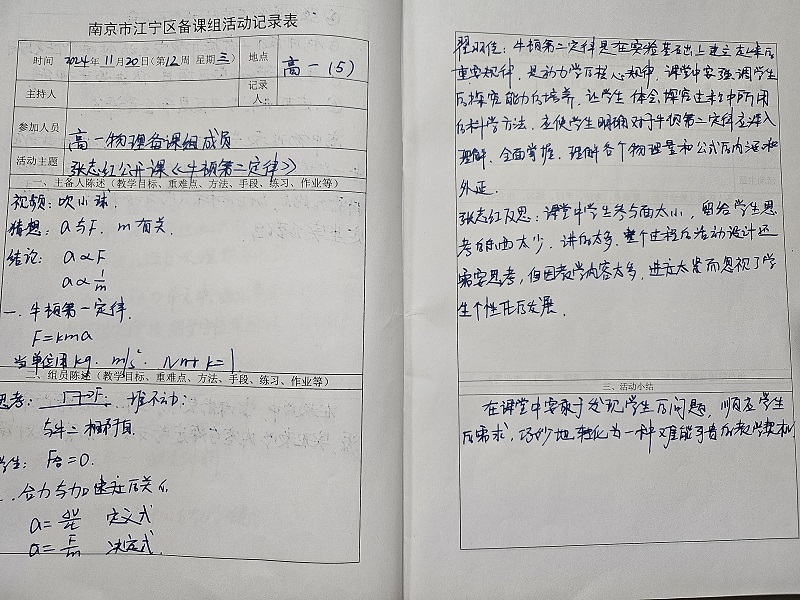 南京市江宁区备课组活动记录表
时间 2024年11月20日(第12周 星期三) 地点 高一(5)
主持人 记录人
参加人员 高一物理备课组成员
活动主题 张志红公开课《牛顿第二定律》
一、主备人陈述（教学目标、重难点、方法、手段、练习、作业等）
视频：吹小球.
猜想：a与F、m有关.
结论：a∝F
a∝1/m
一.牛顿第二定律.
F=kma
当单位用kg. m/s². N时 k=1
二、组员陈述（教学目标、重难点、方法、手段、练习、作业等）
思考： →F 推不动.
与牛二相矛盾.
学生：F合=0.
.合力与加速度的关系.
a=Δv/t 定义式
a=F/m 决定式.
：牛顿第二定律是在实验基础上建立起来的
重要规律，是动力学的核心规律，课堂中要强调学生
的探究能力的培养，让学生体会探究过程中所用
的科学方法，应使学生明确对于牛顿第二定律应深入
理解，全面掌握，理解各个物理量和公式的内涵和
外延.
张志红反思：课堂中学生参与面太小，留给学生思
考的面太少，讲的太多，整个过程的活动设计还
需要思考，但因教学内容太多，进度太紧而忽视了学
生个性化的发展.
三、活动小结
在课堂中要敢于发现学生的问题，顺应学生
的需求，巧妙地转化为一种难能可贵的教学契机